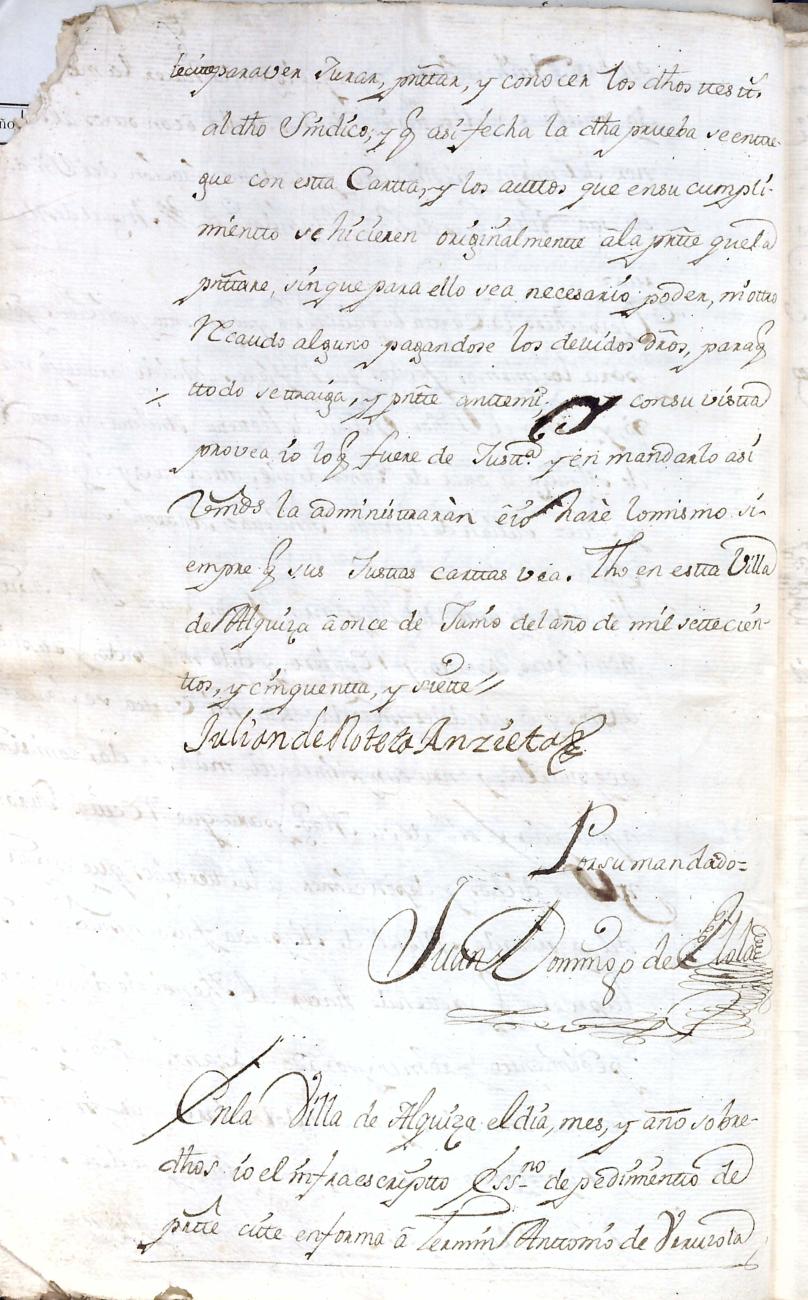 se cite para ver Jurar, prttar, y conocer los dhos ttesttˢ
al dho Síndico; y q̃ así fecha la dha prueba se entre-
gue con estta Cartta, y los auttos que en su cumpli-
mientto se hicieren originalmentte â la prtte que la
prttare, sin que para ello sea necesario poder, ni ottro
Recaudo alguno pagandose los devidos dr̃os, para q̃
ttodo se ttraiga, y prtte anttemi; y con su vistta
provea io lo q̃ fuere de Justtª y en mandarlo así
Vmds la administtraràn è io harè lo mismo si-
empre q̃ sus Justtas carttas vea. fho en estta Villa
de Alquiza â once de Junio del año de mil settecien-
ttos, y cinquentta, y siette
Julian de Roteta Anzieta
Por su mandado=
Juan Domingo de
En la Villa de Alquiza el dia, mes, y año sobre-
dhos io el infraescriptto Essno de pedimientto de
prtte citte en forma â Fermin Anttonio de
ño